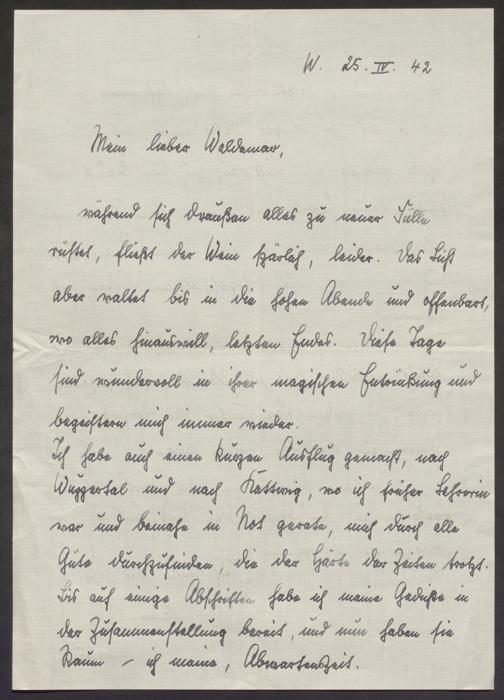 W. 25. IV. 42
Mein lieber Waldemar,
während sich draußen alles zu neuer Fülle
rüstet, fließt der Wein spärlich, leider. Das Licht
aber waltet bis in die hohen Abende und offenbart,
wo alles hinauswill, letzten Endes. Diese Tage
sind wundervoll in ihrer magischen Entrückung und
begeistern mich immer wieder.
Ich habe auch einen kurzen Ausflug gemacht, nach
Wuppertal und nach Kettwig, wo ich früher Lehrerin
war und beinahe in Not gerate, mich durch alle
Güte durchzufinden, die der Härte der Zeiten trotzt.
Bis auf einige Abschriften habe ich meine Gedichte in
der Zusammenstellung bereit, und nun haben sie
Raum – ich meine, Abwartenszeit.